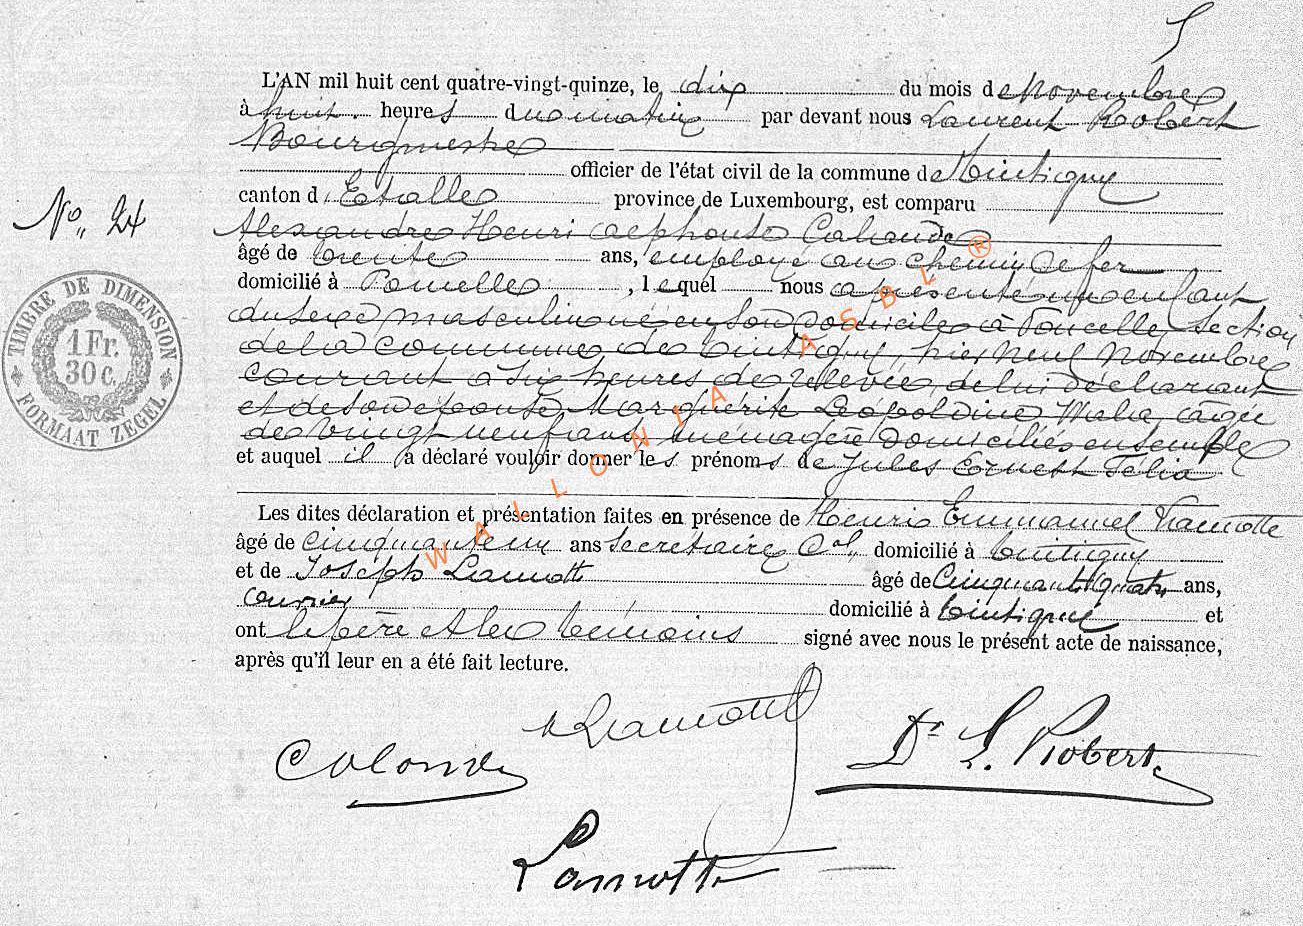 L'AN mil huit cent quatre-vingt-quinze, le dix du mois de Novembre
à huit heures du matin par devant nous Laurent Robert
Bourgmestre
officier de l'état civil de la commune de Tintigny
canton d'Etalle province de Luxembourg, est comparu
N° 24
Alexandre Henri Alphonse
âgé de trente ans, employé au chemin de fer
domicilié à , lequel nous a présenté un enfant
du sexe masculin né en son domicile à section
de la commune de Tintigny, hier neuf Novembre
courant à six heures de relevée, de lui déclarant
et de son épouse Marguérite Léopoldine âgée
de vingt neuf ans, ménagère domiciliés ensemble
et auquel il a déclaré vouloir donner les prénoms de Jules Ernest
Les dites déclaration et présentation faites en présence de Henri Emmanuel Lamotte
âgé de cinquante un ans secrétaire Cal domicilié à Tintigny
et de Joseph Lamotte âgé de Cinquante quatre ans,
ouvrier domicilié à Tintigny et
ont le père et les témoins signé avec nous le présent acte de naissance,
après qu'il leur en a été fait lecture.
Lamotte
Dr L. Robert
Lamotte
TIMBRE DE DIMENSION
1 Fr.
30 c.
FORMAAT ZEGEL
WALLONIA ASBL ®